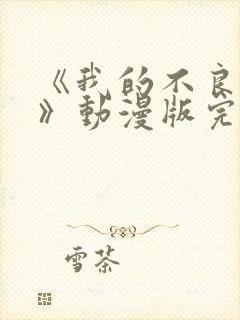 《我的不良
》動漫版完
雪茶